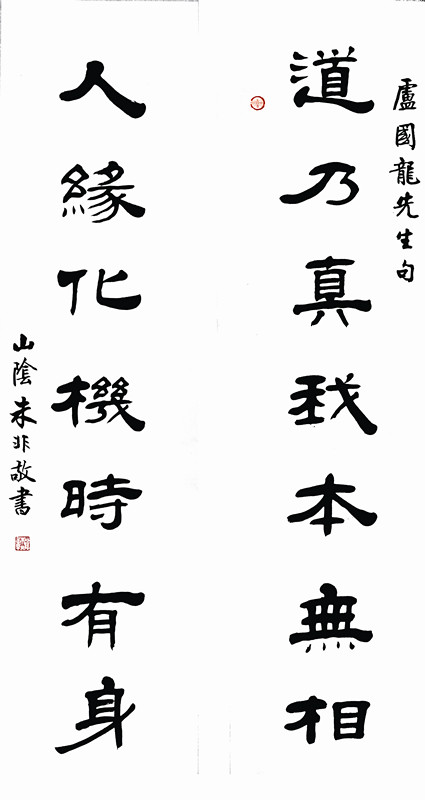 盧國龍先生句
道乃真我本無相
人緣化機時有身
山陰朱非敬書